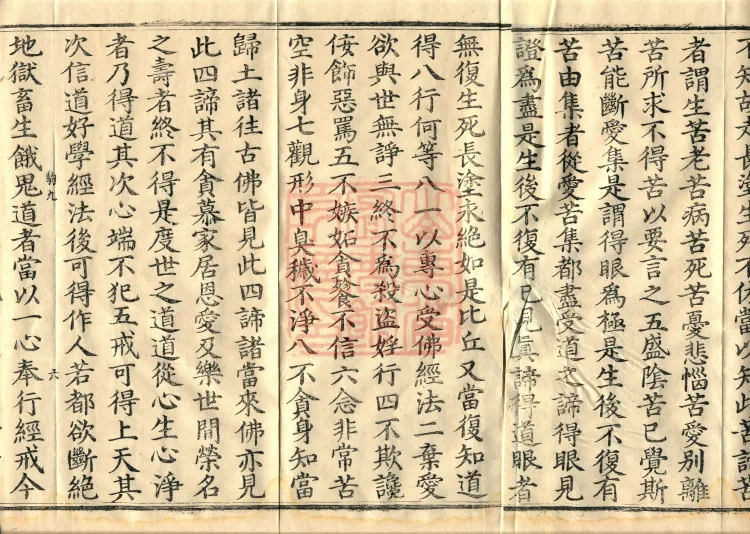 長塗生死不休當以知此
者謂生苦老苦病苦死苦憂悲惱苦愛別離
苦所求不得苦以要言之五盛陰苦已覺斯
苦能斷愛集是謂得眼為極是生後不復有
苦由集者從愛苦集都盡受道之諦得眼見
證為盡是生後不復有已見眞諦得道眼者
無復生死長塗永絕如是比丘又當復知道
得八行何等八一以專心受佛經法二棄愛
欲與世無諍三終不為殺盜婬行四不欺讒
佞飾惡罵五不嫉妬貪餮不信六念非常苦
空非身七觀形中臭穢不淨八不貪身知當
歸土諸往古佛皆見此四諦諸當來佛亦見
此四諦其有貪慕家居恩愛及樂世間榮名
之壽者終不得是度世之道道從心生心淨
者乃得道其次心端不犯五戒可得上天其
次信道好學經法後可得作人若都欲斷絕
九 六
地獄畜生餓鬼道者當以一心奉行經戒今